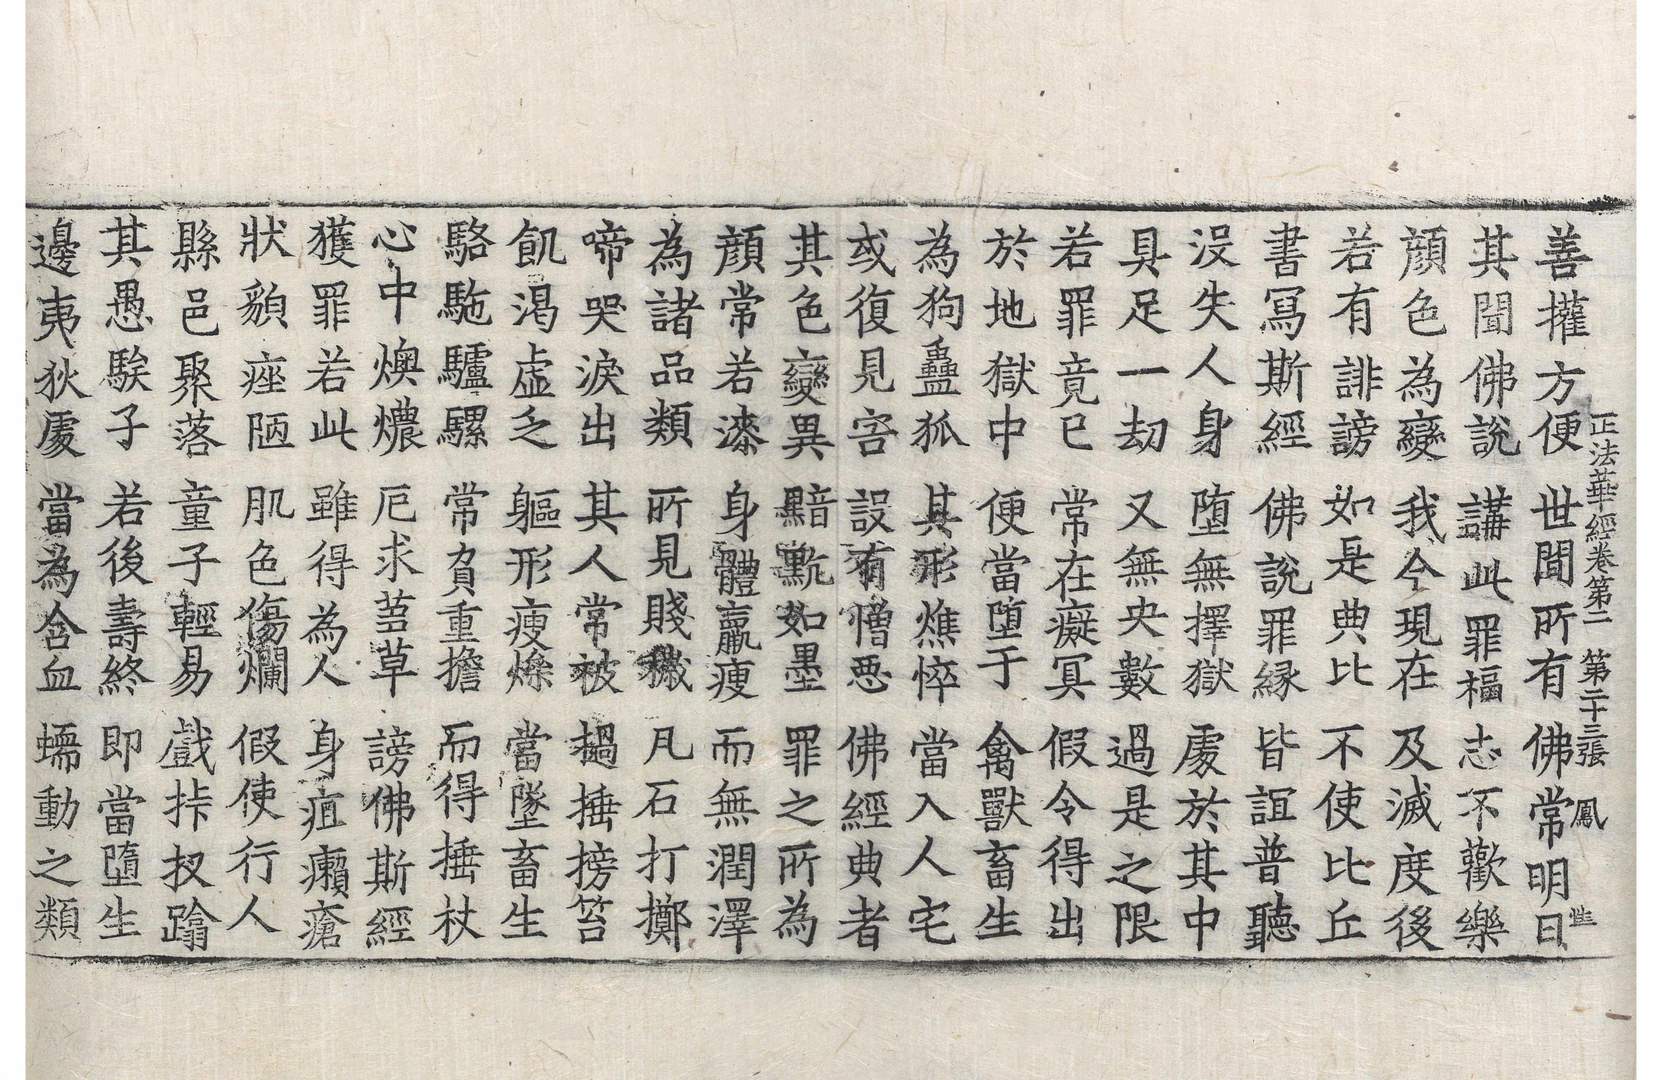 正法華經卷第二 第二十三張 鳳
善攉方便 世間所有 佛常明日
其聞佛說 講此罪福 志不歡樂
顏色為變 我今現在 及滅度後
若有誹謗 如是典比 不使比丘
書寫斯經 佛說罪縁 皆誼普聽
没失人身 墮無擇獄 處於其中
具足一劫 又無央數 過是之限
若罪竟已 常在癡冥 假令得出
於地獄中 便當墮于 禽獸畜生
為狗蠱狐 其形燋悴 當入人宅
或復見害 設有憎惡 佛經典者
其色變異 黯黕如墨 罪之所為
顏常若漆 身體羸瘦 而無潤澤
為諸品類 所見賤穢 凡石打擲
啼哭淚出 其人常被 撾捶搒笞
飢渇虛乏 軀形瘦燥 當墜畜生
駱駞驢騾 常負重擔 而得捶杖
心中燠燶 戹求芻草 謗佛斯經
獲罪若此 雖得為人 身疽癩瘡
狀貌痤陋 肌色傷爛 假使行人
縣邑聚落 童子輕易 戲挊扠踰
其愚騃子 若後壽終 即當墮生
邊夷狄處 當為含血 蠕動之類